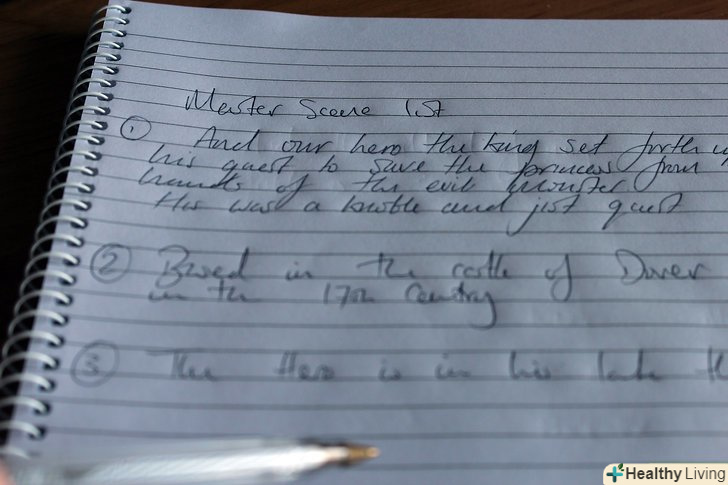 Master Scene list
① And our hero the king set forth u
his quest to save the princess from
hands of the evil monster
His was a knoble and jist quest
② Based in the castle of Dover
in the 17th Century
③ The Hero is in his th
Healthy Living